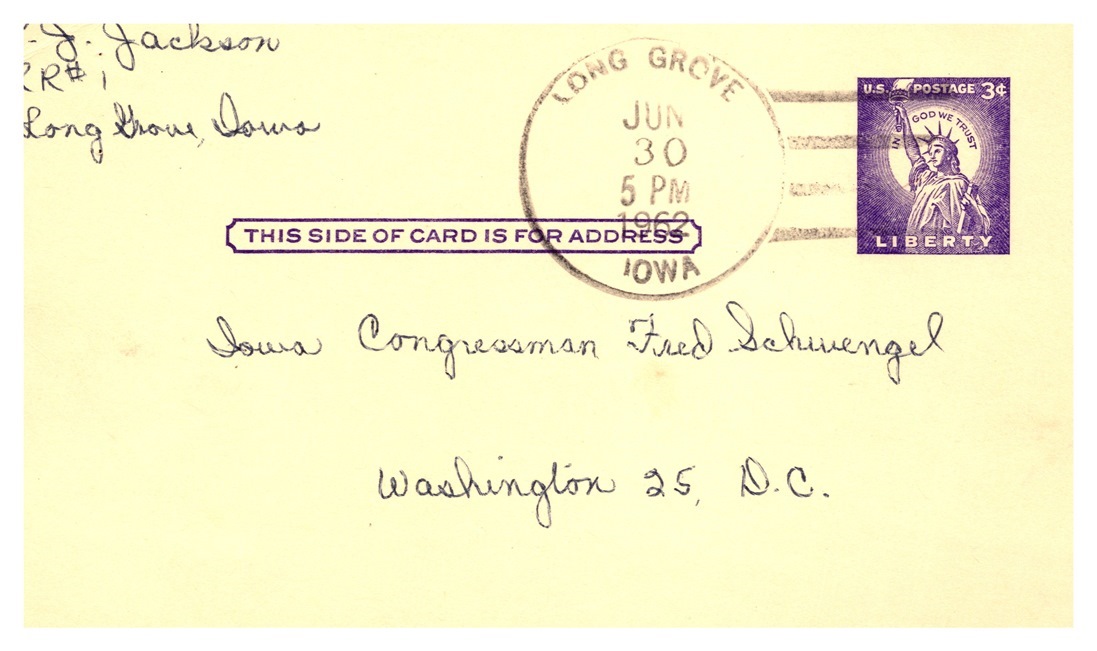 J. Jackson
RR#1
Long Grove, Iowa
LONG GROVE
JUN
30
5 PM
1962
IOWA
U.S. POSTAGE 3¢
IN GOD WE TRUST
LIBERTY
THIS SIDE OF CARD IS FOR ADDRESS
Iowa Congressman Fred Schwengel
Washington 25, D.C.